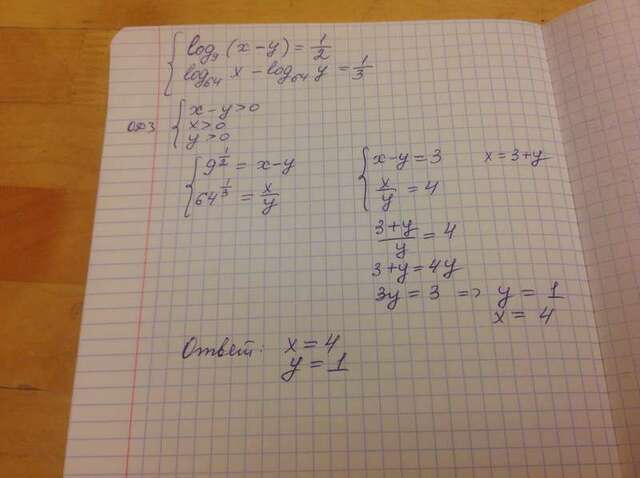 log₉ (x-y) = 1/2
log₆₄ x - log₆₄ y = 1/3
ОДЗ
x-y>0
x>0
y>0
9^(1/2) = x-y
64^(1/3) = x/y
x-y=3 x=3+y
x/y = 4
(3+y)/y = 4
3+y=4y
3y=3 => y = 1
x = 4
Ответ: x=4
y=1